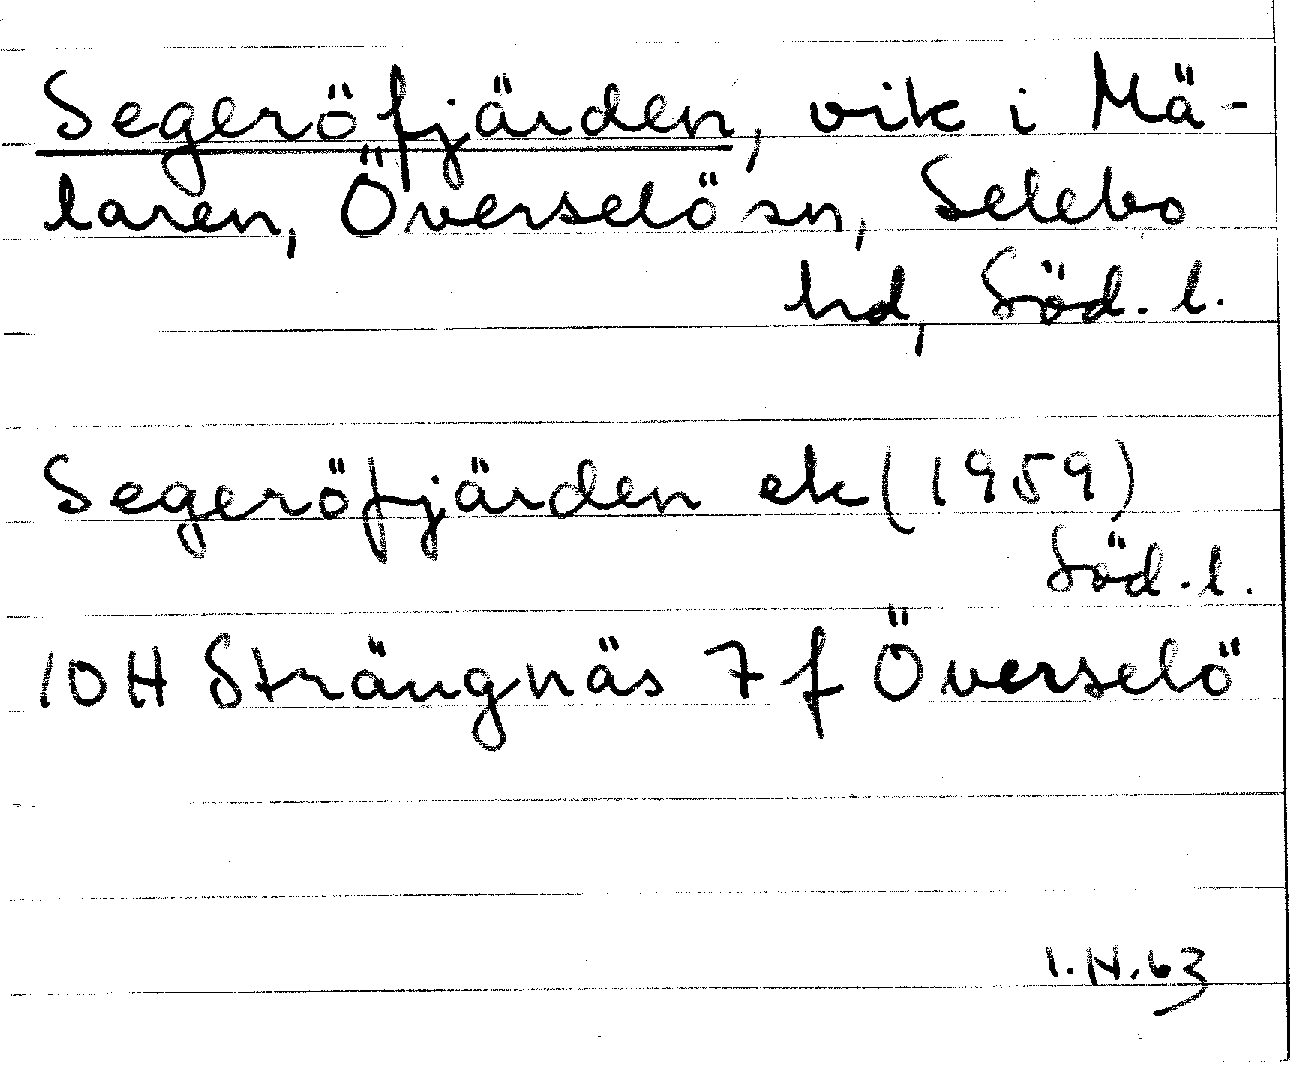 Segeröfjärden, vik i Mä-
laren, Överselö sn, Selebo
hd, Söd. l.
Segeröfjärden ek (1959)
Söd. l.
10H Strängnäs 7 f Överselö
1.IV.63